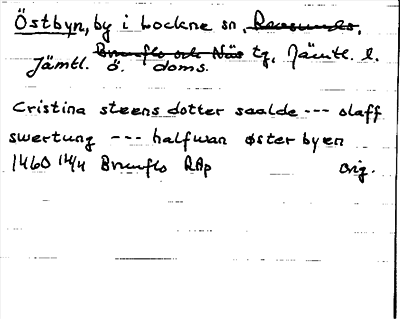 Östbyn, by i Lockne sn, Revsunds,
Brunflo och Näs tg, Jämtl. l.
Jämtl. ö. doms.
Cristina steens dotter saalde --- olaff
swertung --- halfwan øster byen
1460 14/4 Brunflo RAp orig.